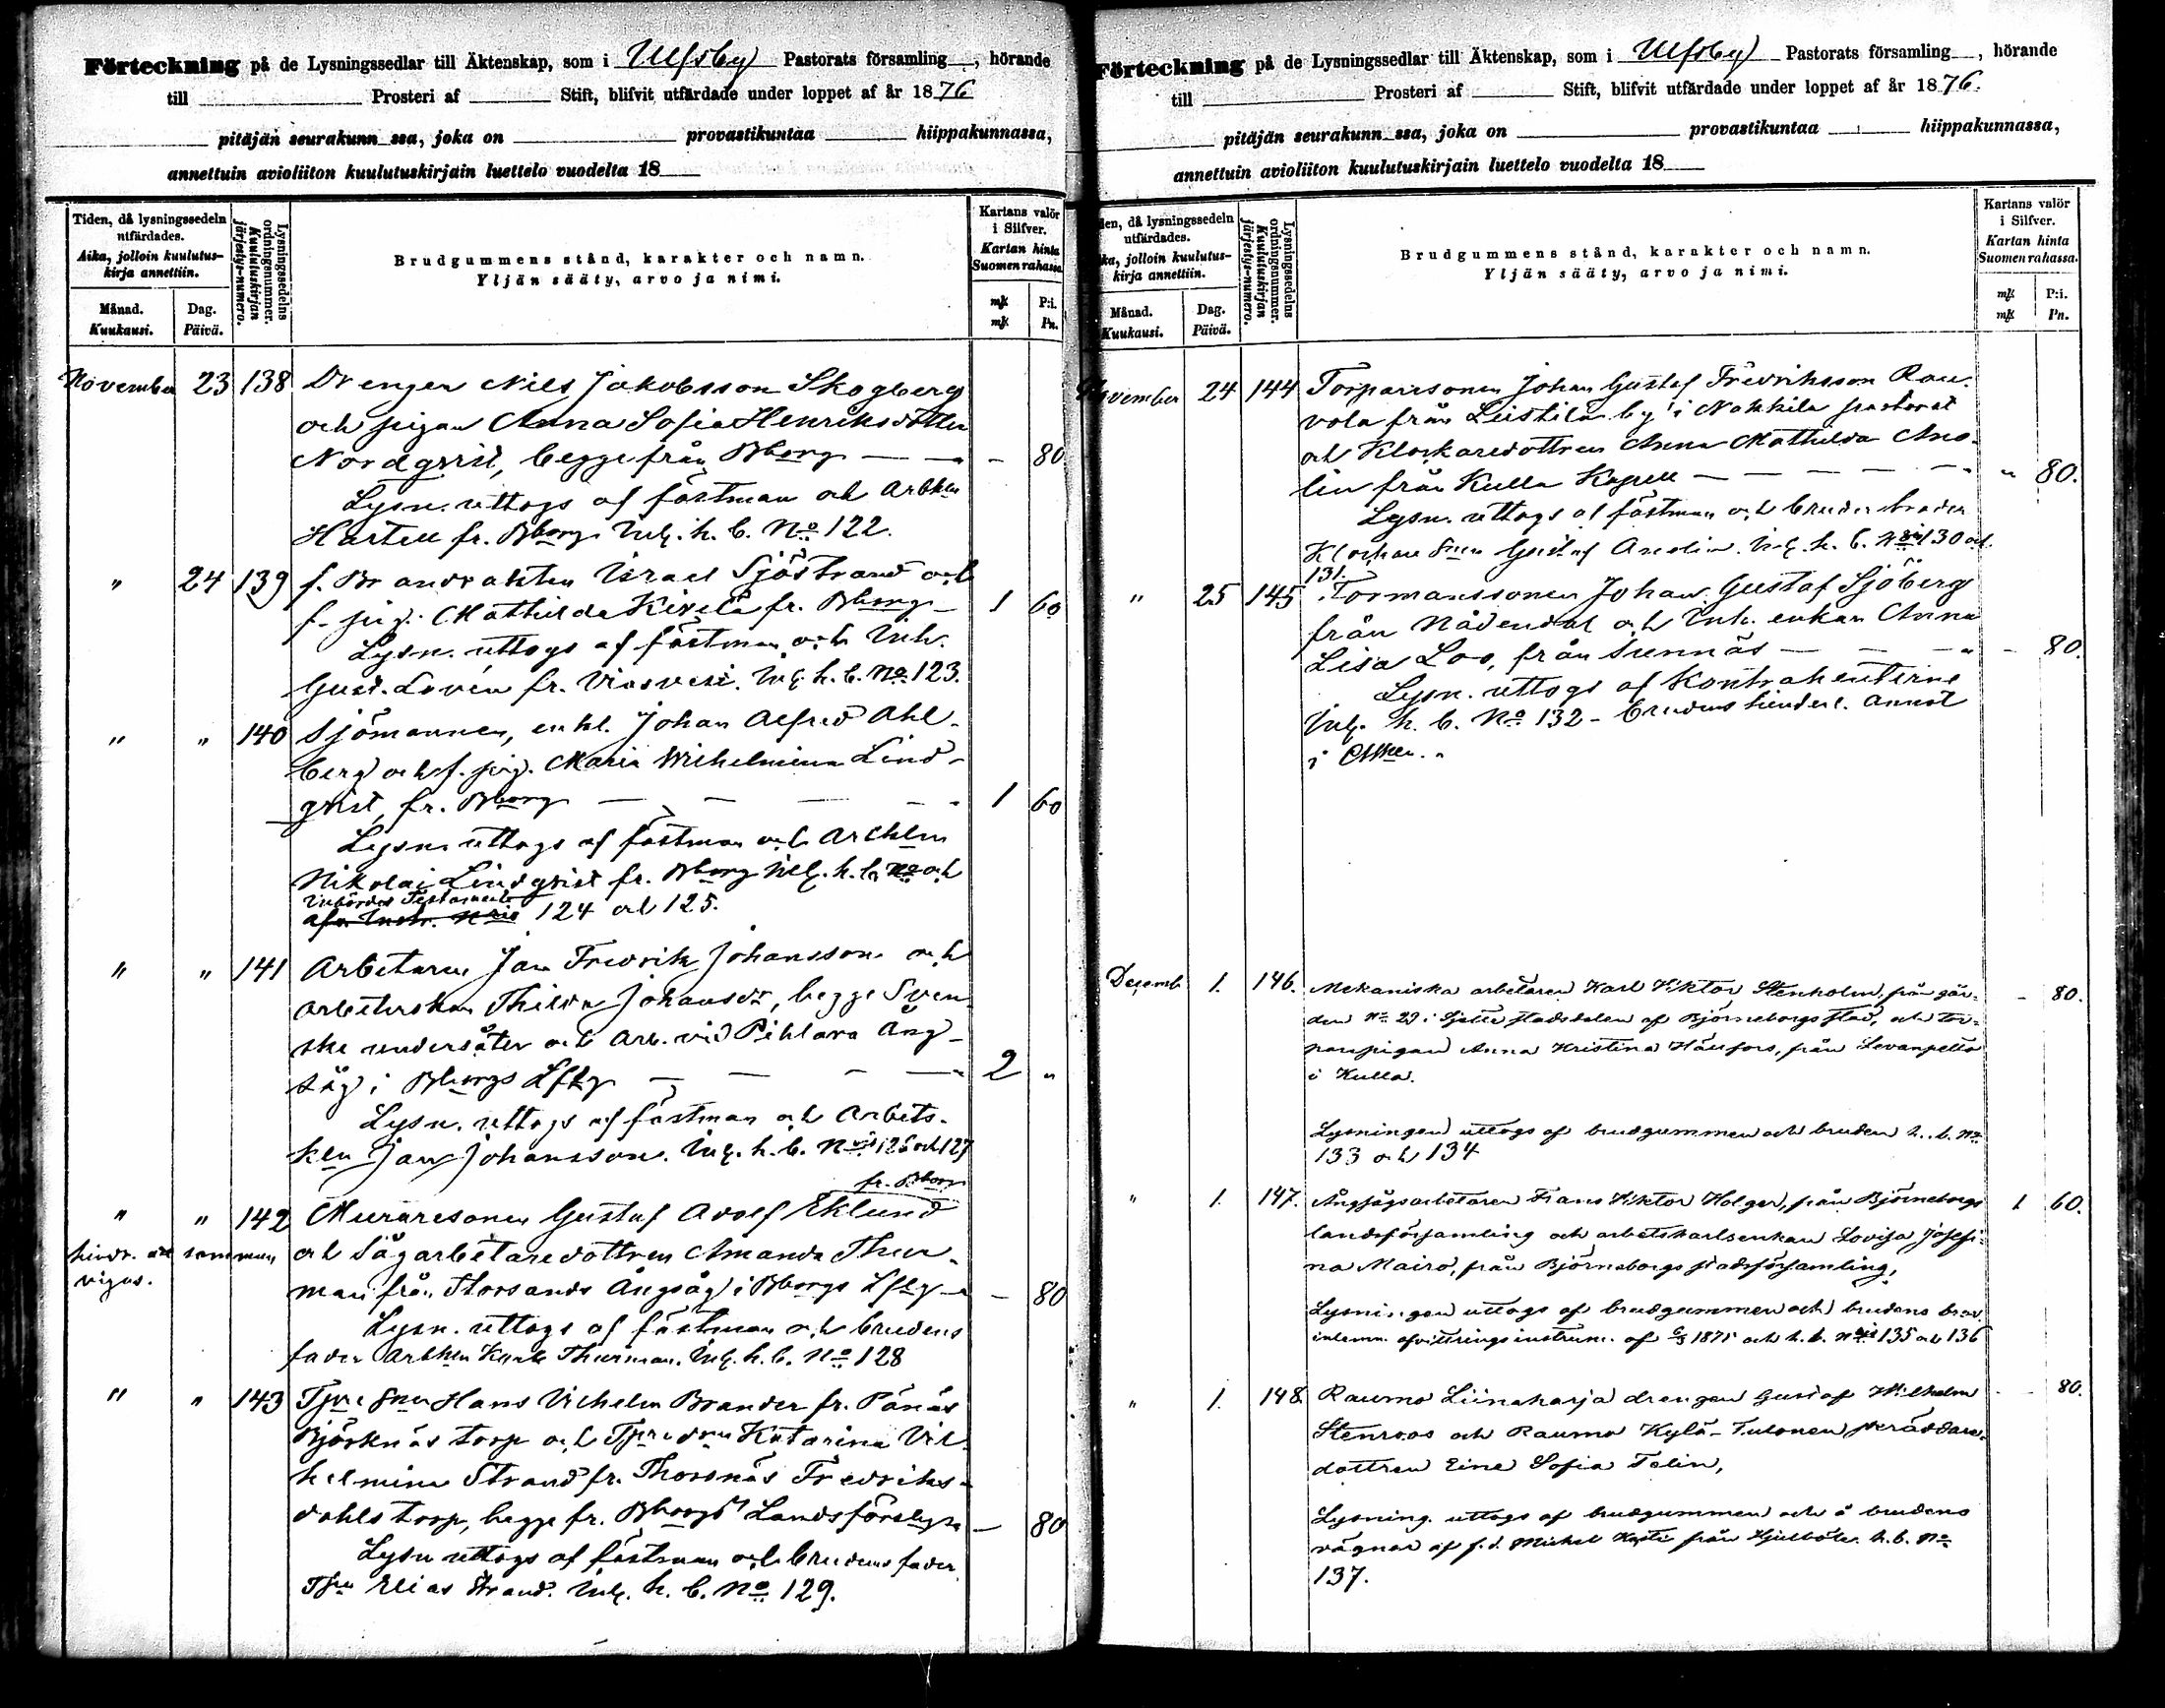 Förteckning på de Lysningssedlar till Äktenskap, som i Ulfsby Pastorats församling, hörande
till Prosteri af Stift, blifvit utfärdade under loppet af år 1876
pitäjän seurakunn ssa, joka on provastikuntaa hiippakunnassa,
annettuin avioliiton kuulutuskirjain luettelo vuodelta 18
Tiden, då lysningssedeln
utfärdades.
Aika, jolloin kuulutus-
kirja annettiin.
Månad.
Kuukausi.
Dag.
Päivä.
Lysningssedelns
ordningsnummer.
Kuulutuskirjan
järjestys-numero.
Brudgummens stånd, karakter och namn.
Yljän sääty, arvo ja nimi.
Kartans valör
i Silfver.
Kartan hinta
Suomen rahassa.
mk P:i.
mk Pn.
November 23 138 Drengen Nils Jakobsson Skogberg
och pigan Anna Sofia Henriksdotter
Nordqvist, begge från Bborg — — - 80
Lysn. uttogs af fästman och arbkln
Hartell fr. Bborg. Inlg. h. b. No 122.
" 24 139 f. Brandvakten Israel Sjöstrand och
f. pig. Mathilda Kivelä fr. Bborg — 1 60
Lysn. uttogs af fästman och Inh.
Gust. Lovén fr. Viasvesi. Inlg. h. b. No 123.
" " 140 Sjömannen, enkl. Johan Alfred Ahl-
berg och f. pig. Maria Wilhelmina Lind-
qvist, fr. Bborg — — — 1 60
Lysn. uttogs af fästman och arbkln
Nikolai Lindqvist fr. Bborg Inlg. h. b. No och
Inbördes Testamente
124 och 125.
" " 141 Arbetaren Jan Fredrik Johansson och
arbeterskan Thilda Johansdr, begge Sven-
ska undersåter och arb. vid Pihlava Ång-
såg i Bborgs Lfsg — — — 2 "
Lysn. uttogs af fästman och arbets-
kln Jan Johansson. Inlg. h. b. Nris 126 och 127
fr. Bborg
" " 142 Muraresonen Gustaf Adolf Eklund
hindr. att sammanvigas.
och Sågarbetaredottren Amanda Thur-
man från Storsands Ångsåg i Bborgs Lfsg — - 80
Lysn. uttogs af fästman och brudens
fader Arbkln Karl Thurman. Inlg. h. b. No 128
" " 143 Tpre Snn Hans Vilhelm Brander fr. Pänäs
Björknäs torp och Tpredrn Katarina Vil-
helmina Strand fr. Thorsnäs Fredriks-
dahls torp, begge fr. Bborgs Landsförslg — 80
Lysn uttogs af fästman och brudens fader
Tpn Elias Strand. Inlg. h. b. No 129.
Förteckning på de Lysningssedlar till Äktenskap, som i Ulfsby Pastorats församling, hörande
till Prosteri af Stift, blifvit utfärdade under loppet af år 1876.
pitäjän seurakunn ssa, joka on provastikuntaa hiippakunnassa,
annettuin avioliiton kuulutuskirjain luettelo vuodelta 18
den, då lysningssedeln
utfärdades.
ka, jolloin kuulutus-
kirja annettiin.
Månad.
Kuukausi.
Dag.
Päivä.
Lysningssedelns
ordningsnummer.
Kuulutuskirjan
järjestys-numero.
Brudgummens stånd, karakter och namn.
Yljän sääty, arvo ja nimi.
Kartans valör
i Silfver.
Kartan hinta
Suomen rahassa.
mk P:i.
mk Pn.
November 24 144 Torparesonen Johan Gustaf Fredriksson Rau-
vola från Leistilä by i Nakkila pastorat
och Klockaredottren Anna Mathilda Ano-
lin från Kulla Kapell — — — " 80.
Lysn. uttogs af fästman och brudens broder
Klockare Snn Gustaf Anolin. Inlg. h. b. Nris 130 och
131.
" 25 145 Formanssonen Johan Gustaf Sjöberg
från Nådendal och Inh. enkan Anna
Lisa Loo, från Sunnäs — — — - 80.
Lysn. uttogs af Kontrahenterne
Inlg. h. b. No 132 - brudens hinderl. annot
i
Decemb 1. 146. Mekaniska arbetaren Karl Viktor Stenholm, från går- - 80.
den No 29 i Sjette stadsdelen af Björneborgs stad, och tor-
parepigan Anna Kristina Hänfors, från Levanpelto
i Kulla.
Lysningen uttogs af brudgummen och bruden h. b. No
133 och 134
" 1. 147. Ångsågsarbetaren Frans Viktor Holger, från Björneborgs 1 60.
landsförsamling och arbetskarlsenkan Lovisa Josefi-
na Mairo, från Björneborgs stadsförsamling,
Lysningen uttogs af brudgummen och brudens bror
inlemn. afvittringsinstrum. af 1875 och h. b. Nris 135 och 136
" 1. 148. Raumo Liinaharja drengen Gustaf Wilhelm - 80.
Stenroos och Raumo Kylä-Tulonen skräddare-
dottren Eine Sofia Talin,
Lysning. uttogs af brudgummen och å brudens
vägnar af f.d. Mickel från h. b. No
137.